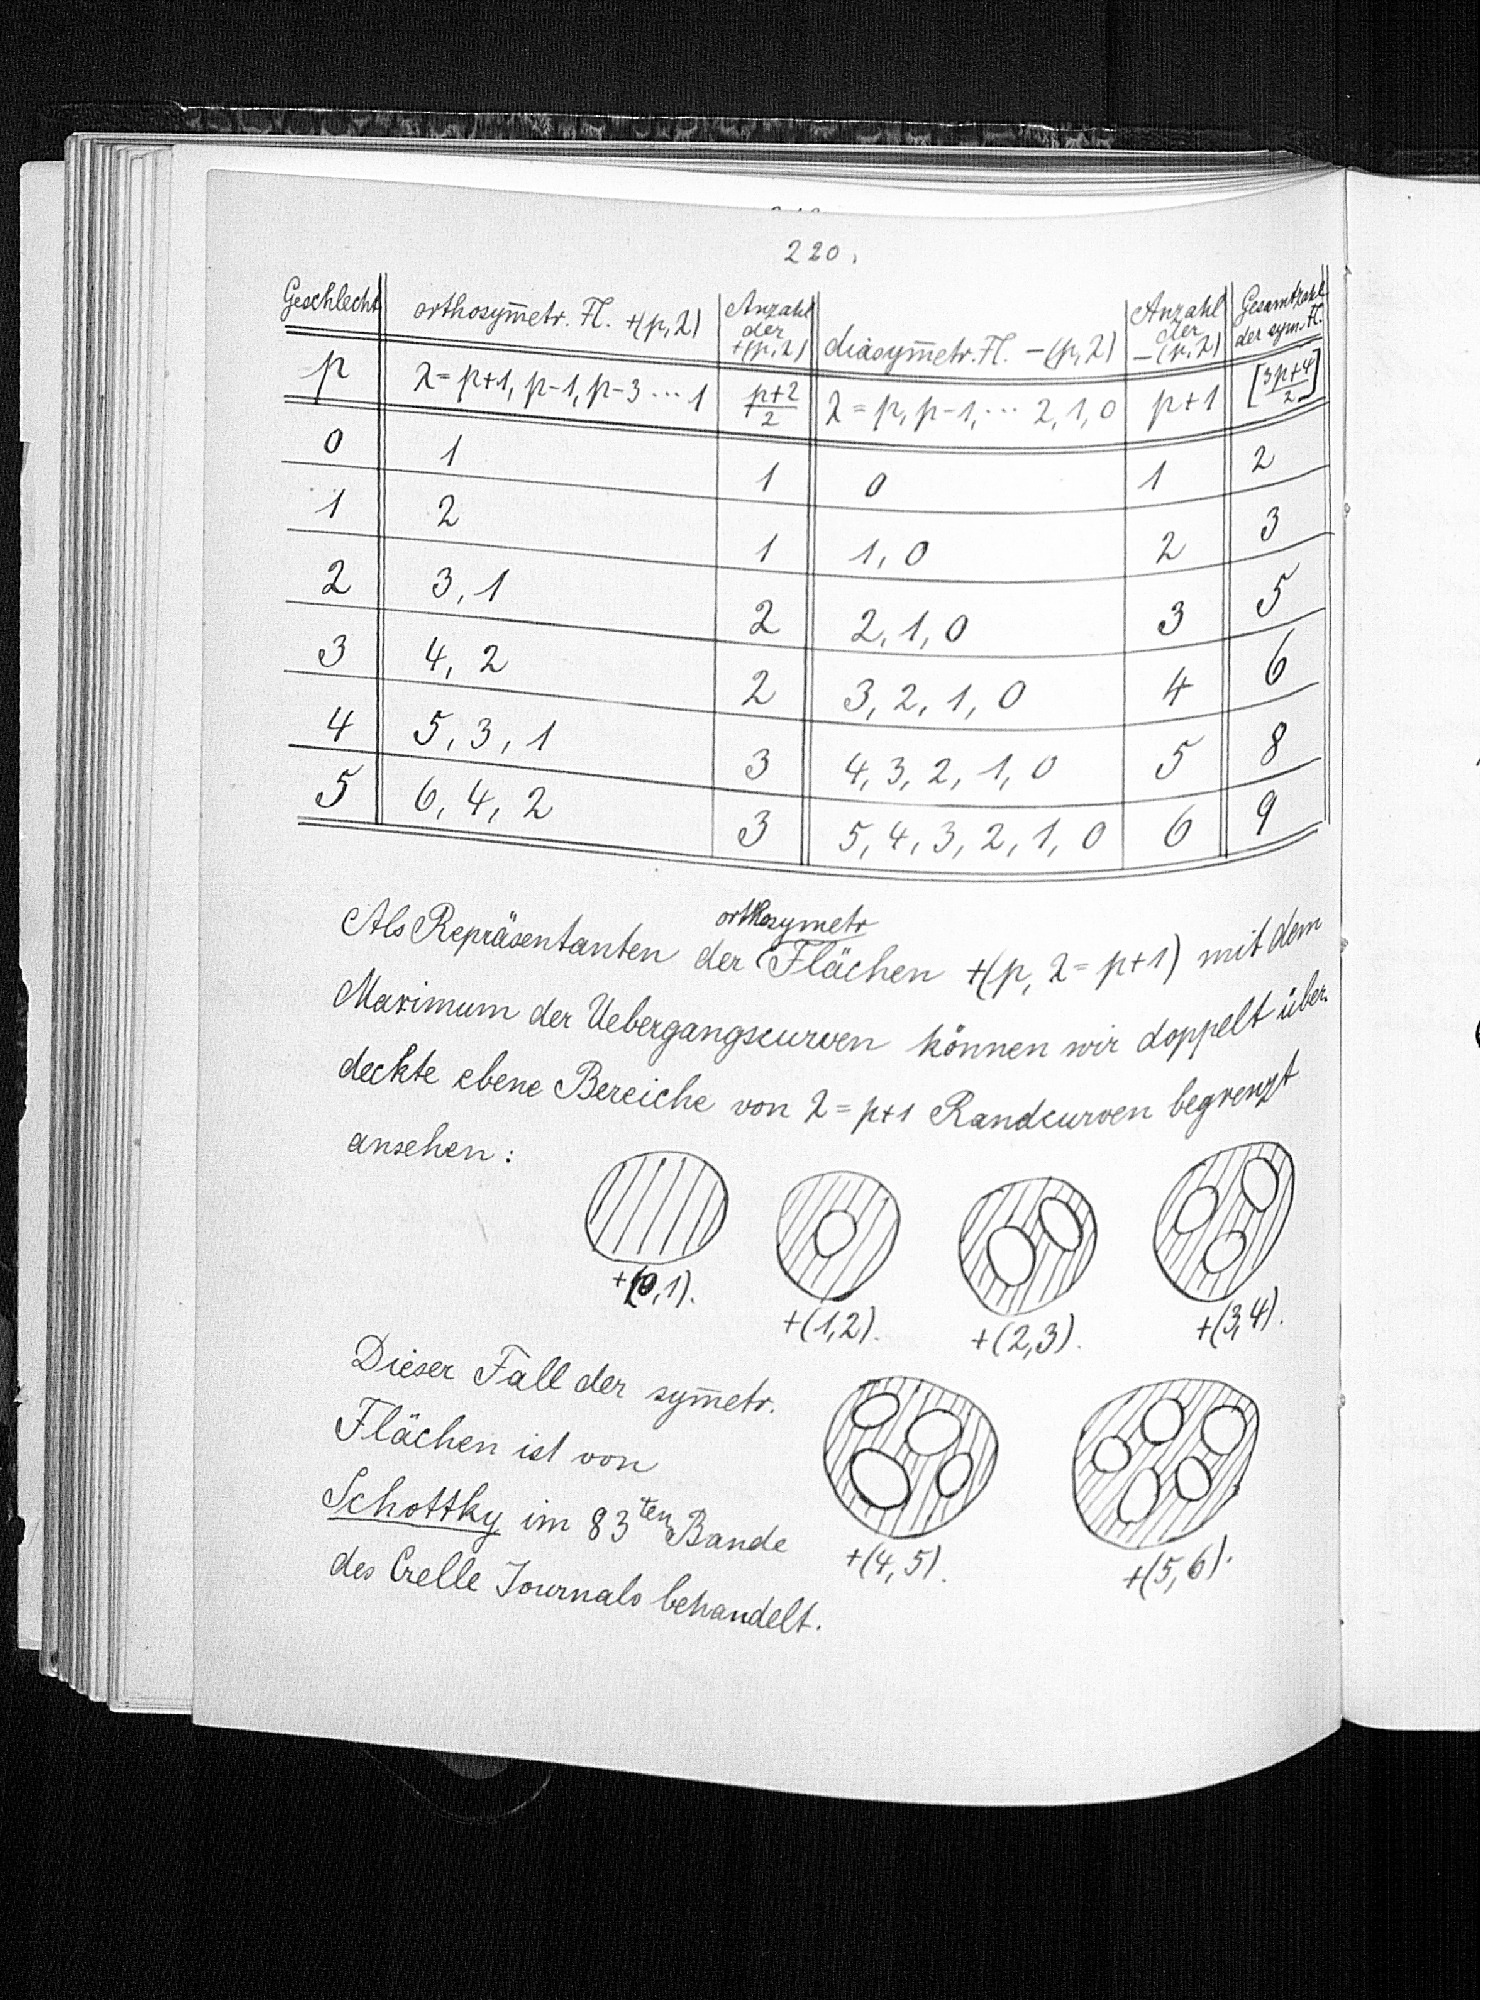 220.
Geschlecht orthosym̅etr. Fl. +(p,λ) Anzahl der +(p,λ) diasym̅etr. Fl. -(p,λ) Anzahl der -(p,λ) Gesamtzahl der sym. Fl.
p λ=p+1, p-1, p-3 ... 1 p+2/2 λ=p, p-1, ... 2, 1, 0 p+1 [3p+4/2]
0 1 1 0 1 2
1 2 1 1, 0 2 3
2 3, 1 2 2, 1, 0 3 5
3 4, 2 2 3, 2, 1, 0 4 6
4 5, 3, 1 3 4, 3, 2, 1, 0 5 8
5 6, 4, 2 3 5, 4, 3, 2, 1, 0 6 9
orthosymetr
Als Repräsentanten der Flächen +(p, λ=p+1) mit dem
Maximum der Uebergangscurven können wir doppelt über-
deckte ebene Bereiche von λ=p+1 Randcurven begrenzt
ansehen:
+(0,1). +(1,2). +(2,3). +(3,4).
Dieser Fall der sym̅etr.
Flächen ist von
Schottky im 83ten Bande
des Crelle Journals behandelt.
+(4,5). +(5,6).